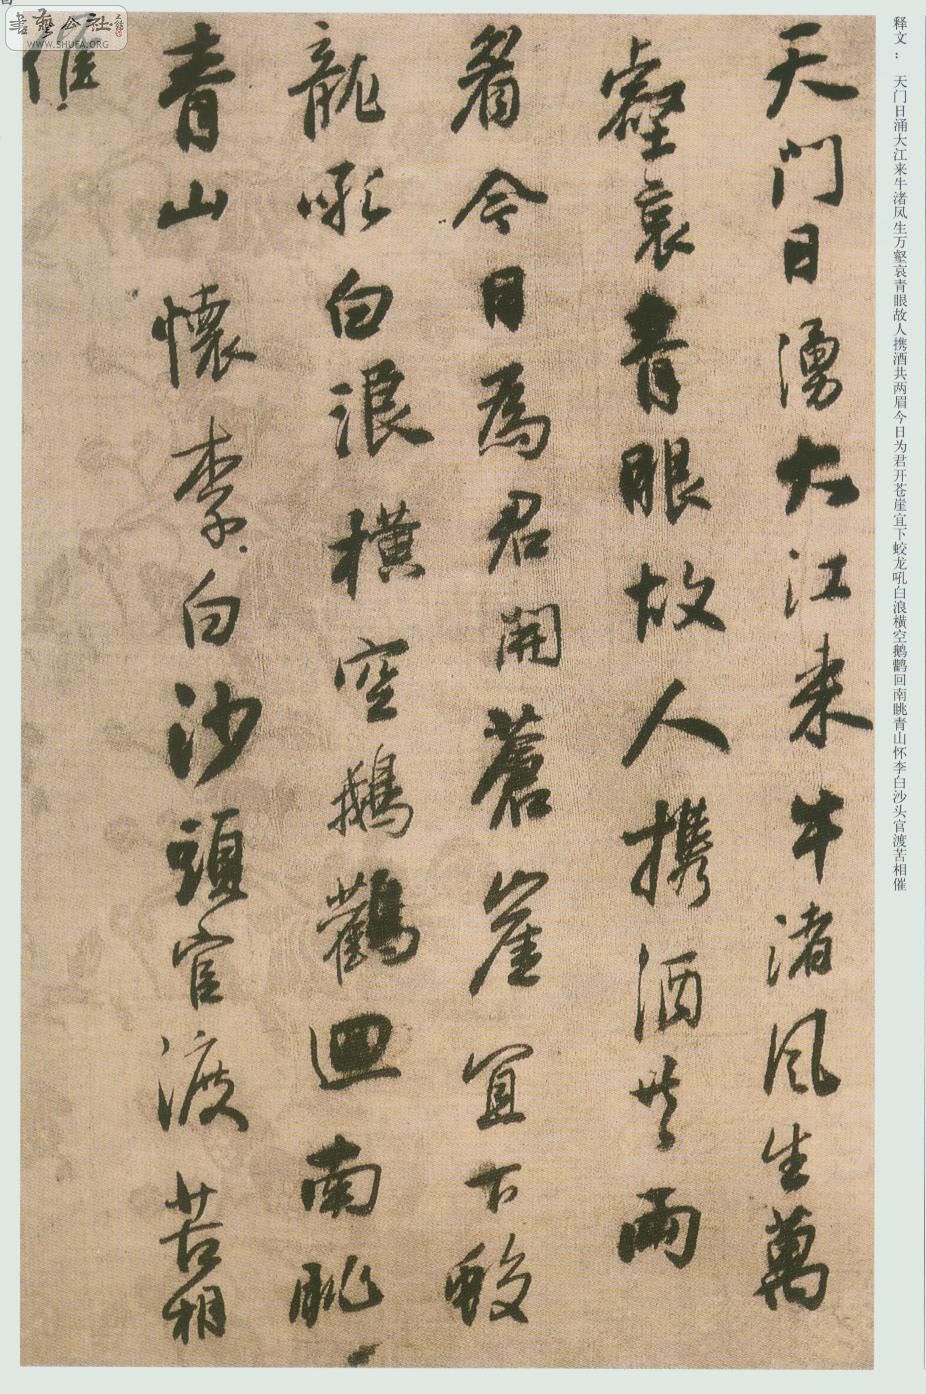 書藝公社
WWW.SHUFA.ORG
释文：天门日涌大江来牛渚风生万壑哀青眼故人携酒共两眉今日为君开苍崖宜下蛟龙吼白浪横空鹅鹳回南眺青山怀李白沙头官渡苦相催
天门日湧大江来牛渚风生萬
壑哀青眼故人携酒共兩
眉今日為君開蒼崖宜下蛟
龍吼白浪横空鵝鸛迴南眺
青山懷李白沙頭官渡苦相
催